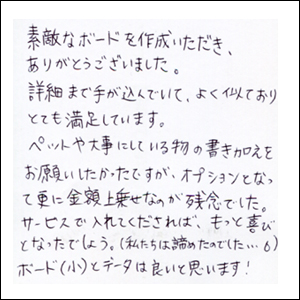 素敵なボードを作成いただき、
ありがとうございました。
詳細まで手が込んでいて、よく似ており
とても満足しています。
ペットや大事にしている物の書き加えを
お願いしたかったですが、オプションとなっ
て更に金額上乗せなのが残念でした。
サービスで入れてくだされば、もっと喜び
となったでしょう。(私たちは諦めたのでした…6)
ボード(小)とデータは良いと思います!